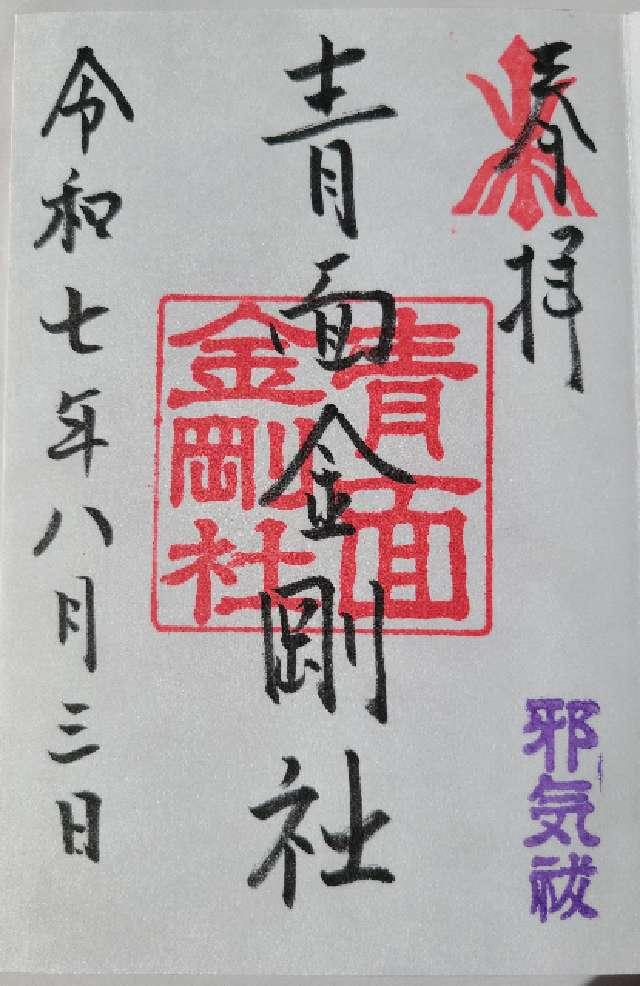 奉拝
邪気祓
青面金剛社
青面
金剛社
令和七年八月三日